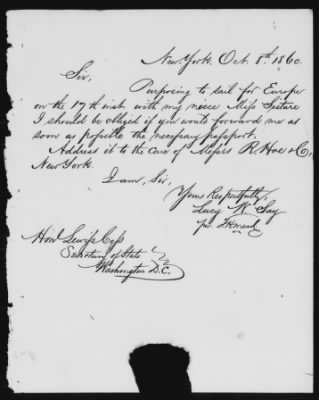 New York, Oct. 8th 1860.
Sir,
Purposing to sail for Europe
on the 17th inst. with my niece Miss
I should be obliged if you would forward me as
soon as possible the necessary passport.
Address it to the care of Messrs R. Hoe & Co,
New York.
I am, Sir,
Yours Respectfully,
Lucy M
pr.
Honl Lewis Cass
Secretary of State
Washington D.C.